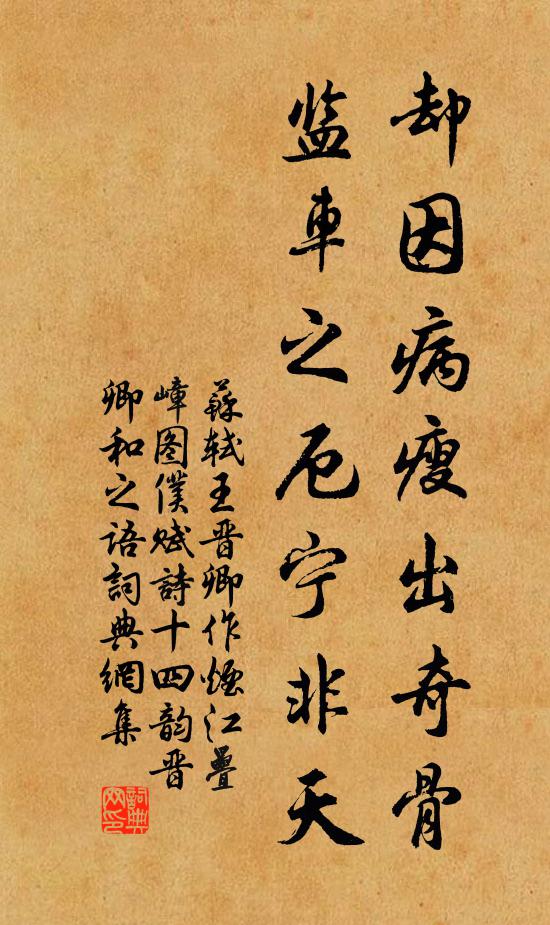 却因病瘦出奇骨
监車之厄宁非天
蘇轼王晋卿作煙江疊
嶂图僕赋詩十四韵晋
卿和之语詞典網集
詞典网印